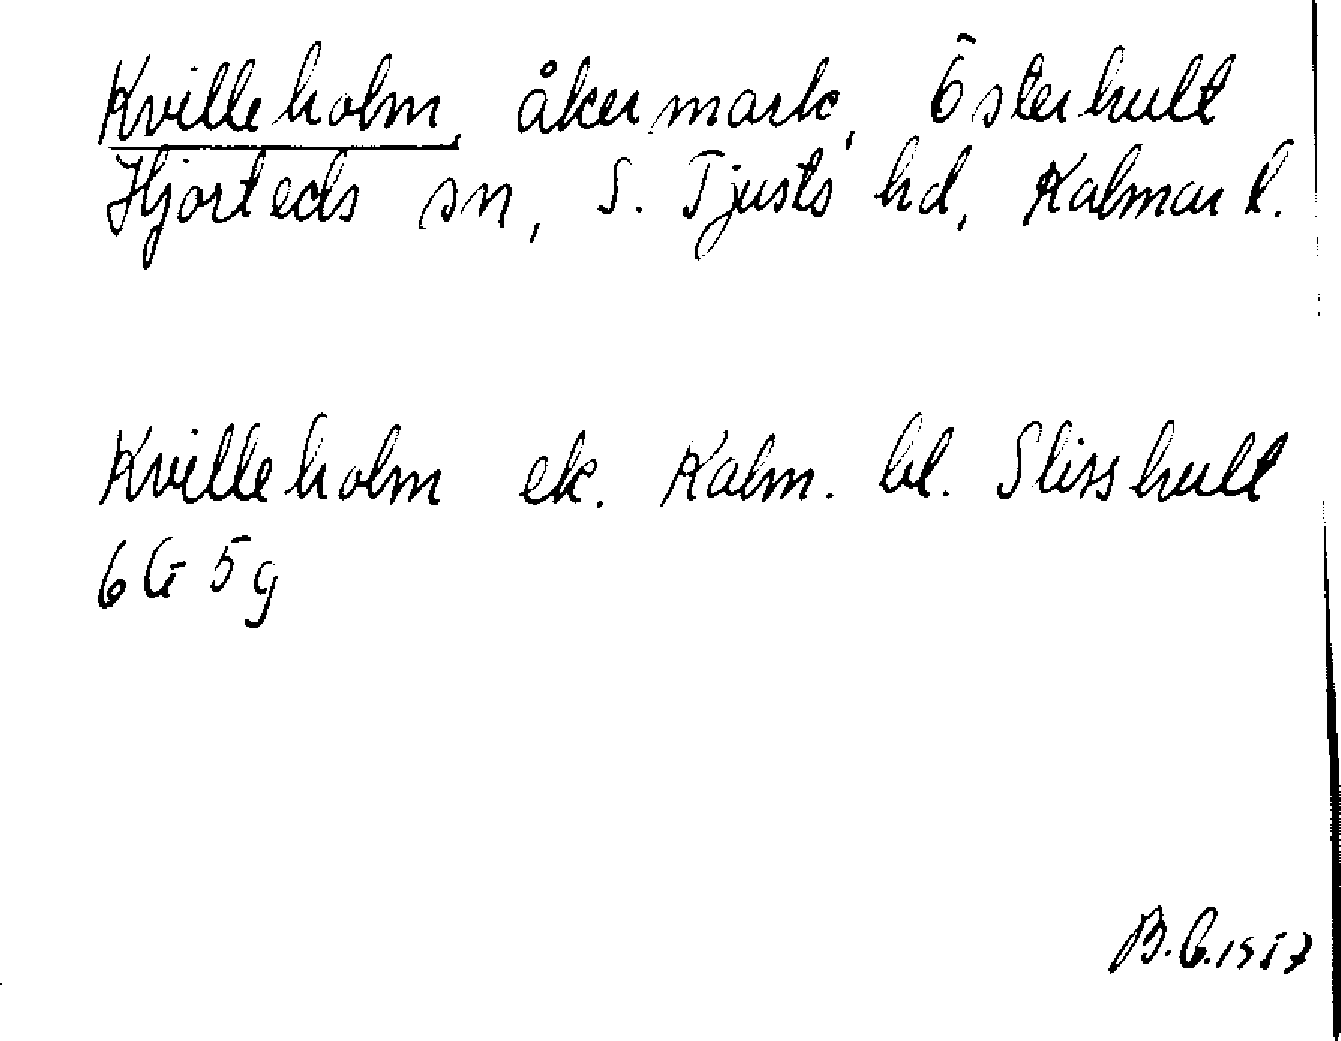 Kvilleholm, åkermark, Österhult
Hjorteds sn, S. Tjusts hd, Kalmar l.
Kvilleholm ek. Kalm. bl. Slisshult
6G 5g
B.G.1957